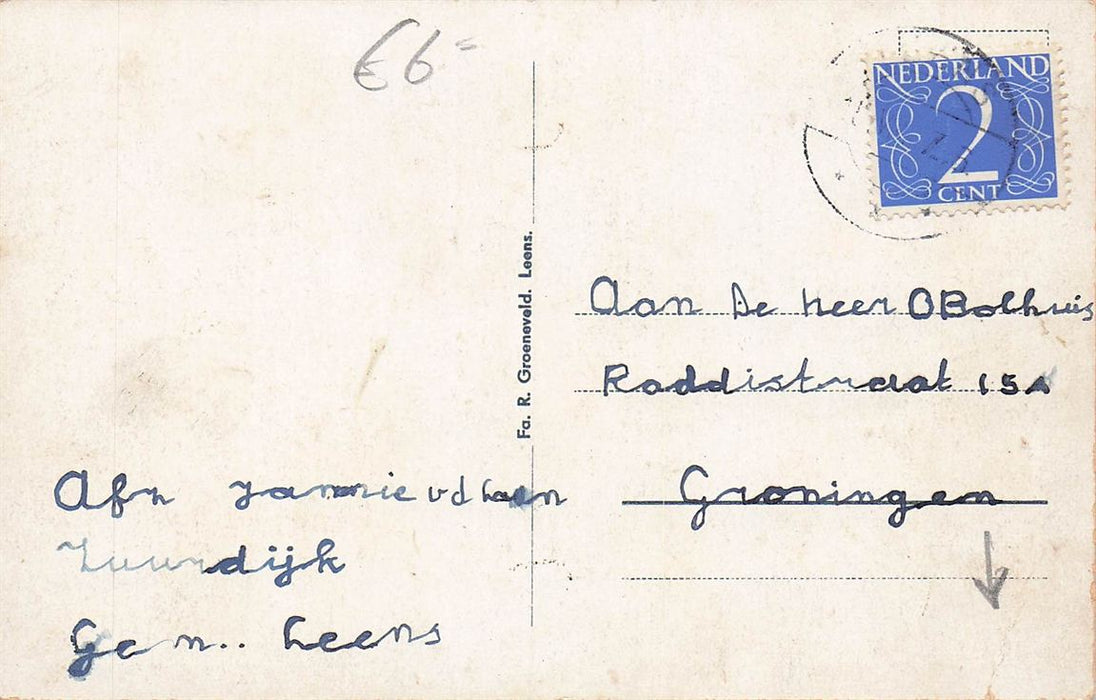 €6=
NEDERLAND
2
CENT
Fa. R. Groeneveld. Leens.
Aan De heer O Bolhuis
Raddistraat 15A
Groningen
Afn Jannie v d Haan
Zuurdijk
Gem.. Leens